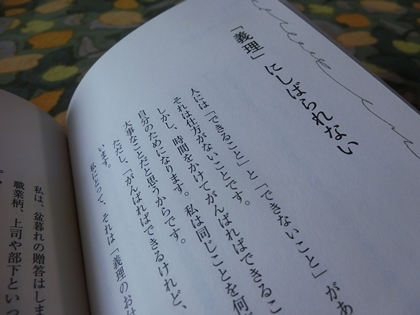 「義理」にしばられない
人には「できること」と「できないこと」があ
それは仕方がないことです。
しかし、時間をかけてがんばればできるこ
自分のためになります。私は同じことを何
大事なことだと思うからです。
ただし、「がんばればできるけれど、
います。
私にとって、それは「義理のお付
私は、盆暮れの贈答はしま
職業柄、上司や部下といっ